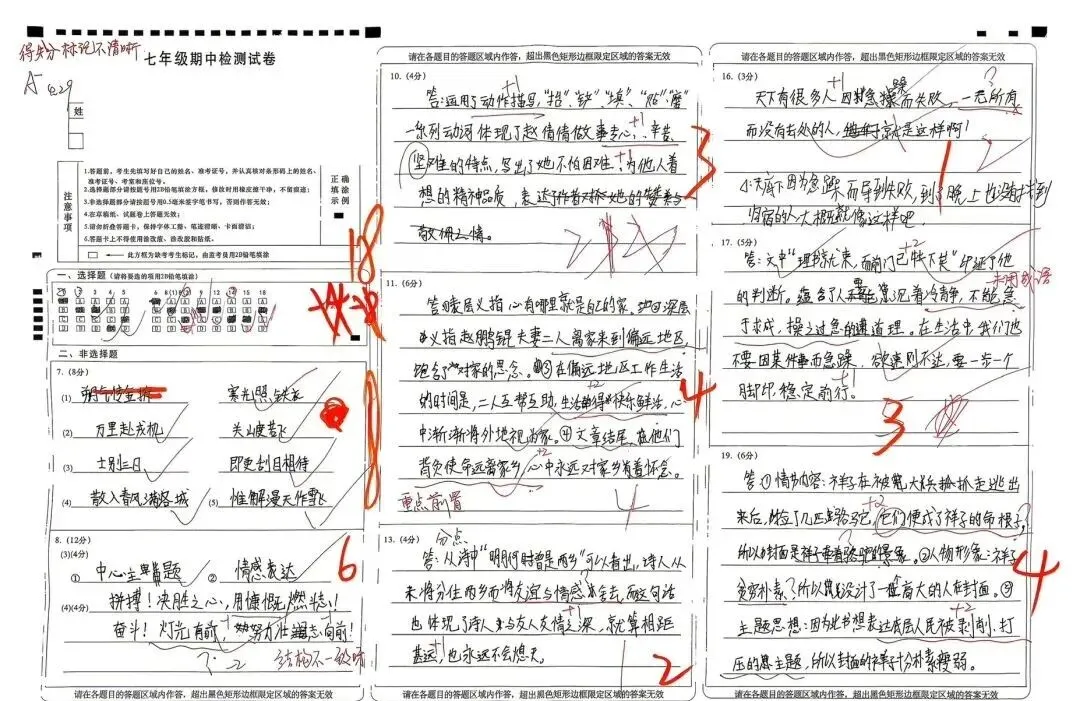 得失分标记不清晰
七年级期中检测试卷
A
姓
注意事项
1.答题前，考生先填写好自己的姓名、准考证号，并认真核对条形码上的姓名、
准考证号、考室和座位号。
2.选择题部分请按题号用2B铅笔填涂方框，修改时用橡皮擦干净，不留痕迹；
3.非选择题部分请按题号用0.5毫米签字笔书写，否则作答无效；
4.在草稿纸、试题卷上答题无效；
5.请勿折叠答题卡，保持字体工整、笔迹清晰、卡面清洁；
6.答题卡上不得使用涂改液、涂改胶和贴纸。
正确填涂示例
此方框为缺考考生标记，由监考员用2B铅笔填涂
18
一、选择题（请将要选的项用2B铅笔填涂）
二、非选择题
7.（8分）
(1) 寒光照铁衣
(2) 万里赴戎机 关山度若飞
(3) 士别三日 即更刮目相待
(4) 散入春风满洛城 (5) 惟解漫天作雪飞
8
8.（12分）
(3)(4分)
① 中心主题 ② 情感表达
6
(4)(4分) 拼搏！决胜之心，用慷慨燃斗志！
奋斗！灯光有前，努力壮志向前！
-2 结构不一致
请在各题目的答题区域内作答，超出黑色矩形边框限定区域的答案无效
请在各题目的答题区域内作答，超出黑色矩形边框限定区域的答案无效
10.（4分）
+1
答：运用了动作描写，“招”、“铲”、“填”、“贴”、“磨”
一系列动词体现了赵倩倩做事专心、辛苦、
+1
坚难的特点，写出了她不怕困难，为他人着
+1
想的精神品质，表达了作者对她的赞美与
敬佩之情。
3
11.（6分）
答：表层义指心有哪里就是自己的家，地②深层
义指赵鹏锟夫妻二人离家来到偏远地区，
饱含了对家的思念。③在偏远地区工作生活
+2
的时间是，二人互帮互助，生活快乐鲜活，心
中渐渐将外地视为家。④文章结尾，在他们
+2
背负使命远离家乡，心中永远对家乡有着怀念。
重点前置
4
4
13.（4分） 分点
答：从诗中“明月何时曾是两乡”可以看出，诗人从
未将分住两乡而将友谊与情感失去，而这句话
+1
也体现了诗人与友人友情之深，就算相距
+1
甚远，也永远不会熄灭。
2
请在各题目的答题区域内作答，超出黑色矩形边框限定区域的答案无效
请在各题目的答题区域内作答，超出黑色矩形边框限定区域的答案无效
16.（3分） +1
天下有很多人因急躁而失败，一无所有
而没有去处的人，就是这样啊！
+1
1
2
天底下因为急躁而导到失败，到了晚上也没有找到
归宿的人大概就像这样吧
17.（5分） +2
答：文中“理捺尤束，而前门已牡下矣”印证了他
的判断。蕴含了人要沉着冷静，不能急
于求成，操之过急的道理。在生活中，我们也
不要因某件事而急躁，欲速则不达，要一步一个
脚印，稳定前行。
+1
3
19.（6分）
答：①情节内容：祥子在被大兵抓走逃出
+2
来后，捡了几匹骆驼，它们便成了祥子的命根子，
所以封面是祥子牵着骆驼的景象。②人物形象：祥子
穷穷朴素，所以设计了一位高大的人在封面。③
+2
主题思想：因为此书想表达底层人民被剥削、打
压的主题，所以封面的祥子十分朴素瘦弱。
4
请在各题目的答题区域内作答，超出黑色矩形边框限定区域的答案无效